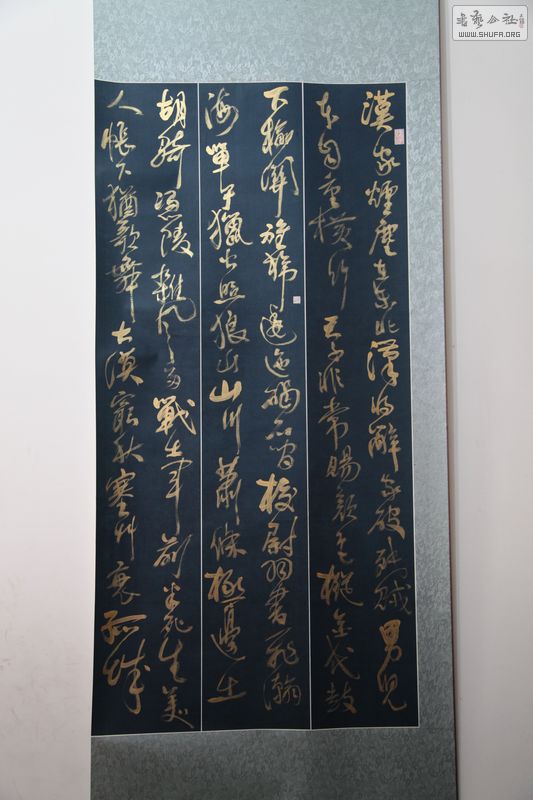 書藝公社
WWW.SHUFA.ORG
漢家煙塵在東北漢將辭家破殘賊男兒
本自重橫行天子非常賜顏色摐金伐鼓
下榆關旌旆逶迤碣石間校尉羽書飛瀚
海單于獵火照狼山山川蕭條極邊土
胡騎憑陵雜風雨戰士軍前半死生美
人帳下猶歌舞大漠窮秋塞草衰孤城